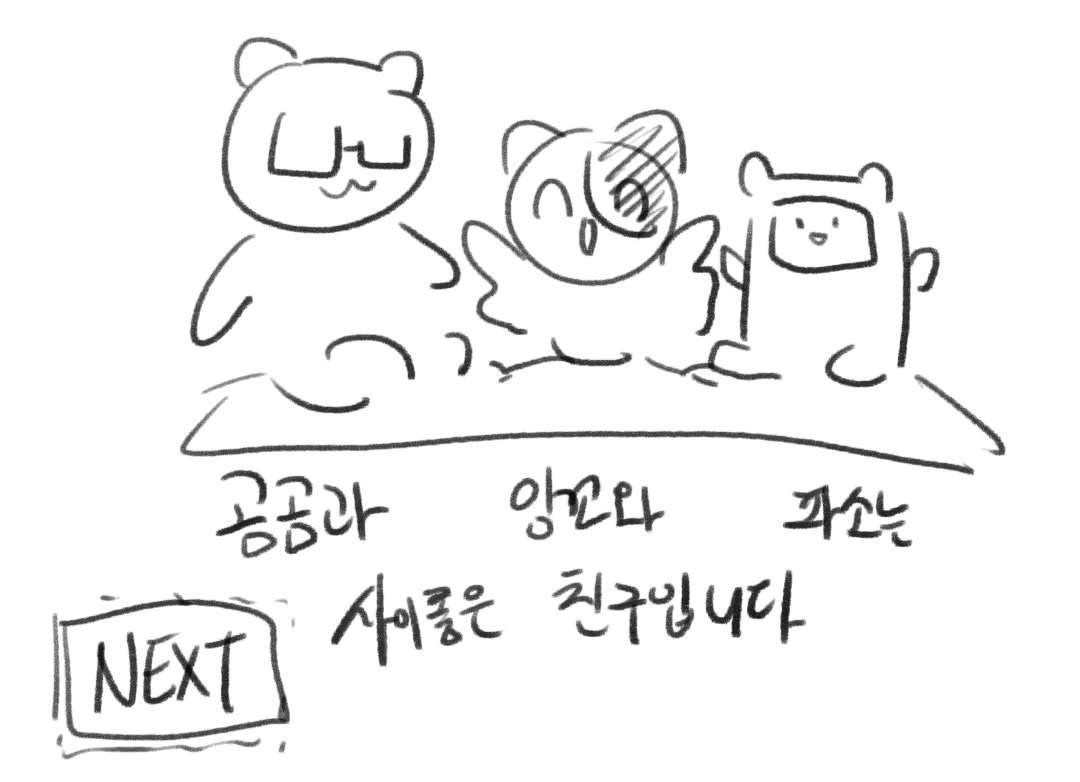 곰곰과 앙꼬와 파소는
사이좋은 친구입니다
NEXT